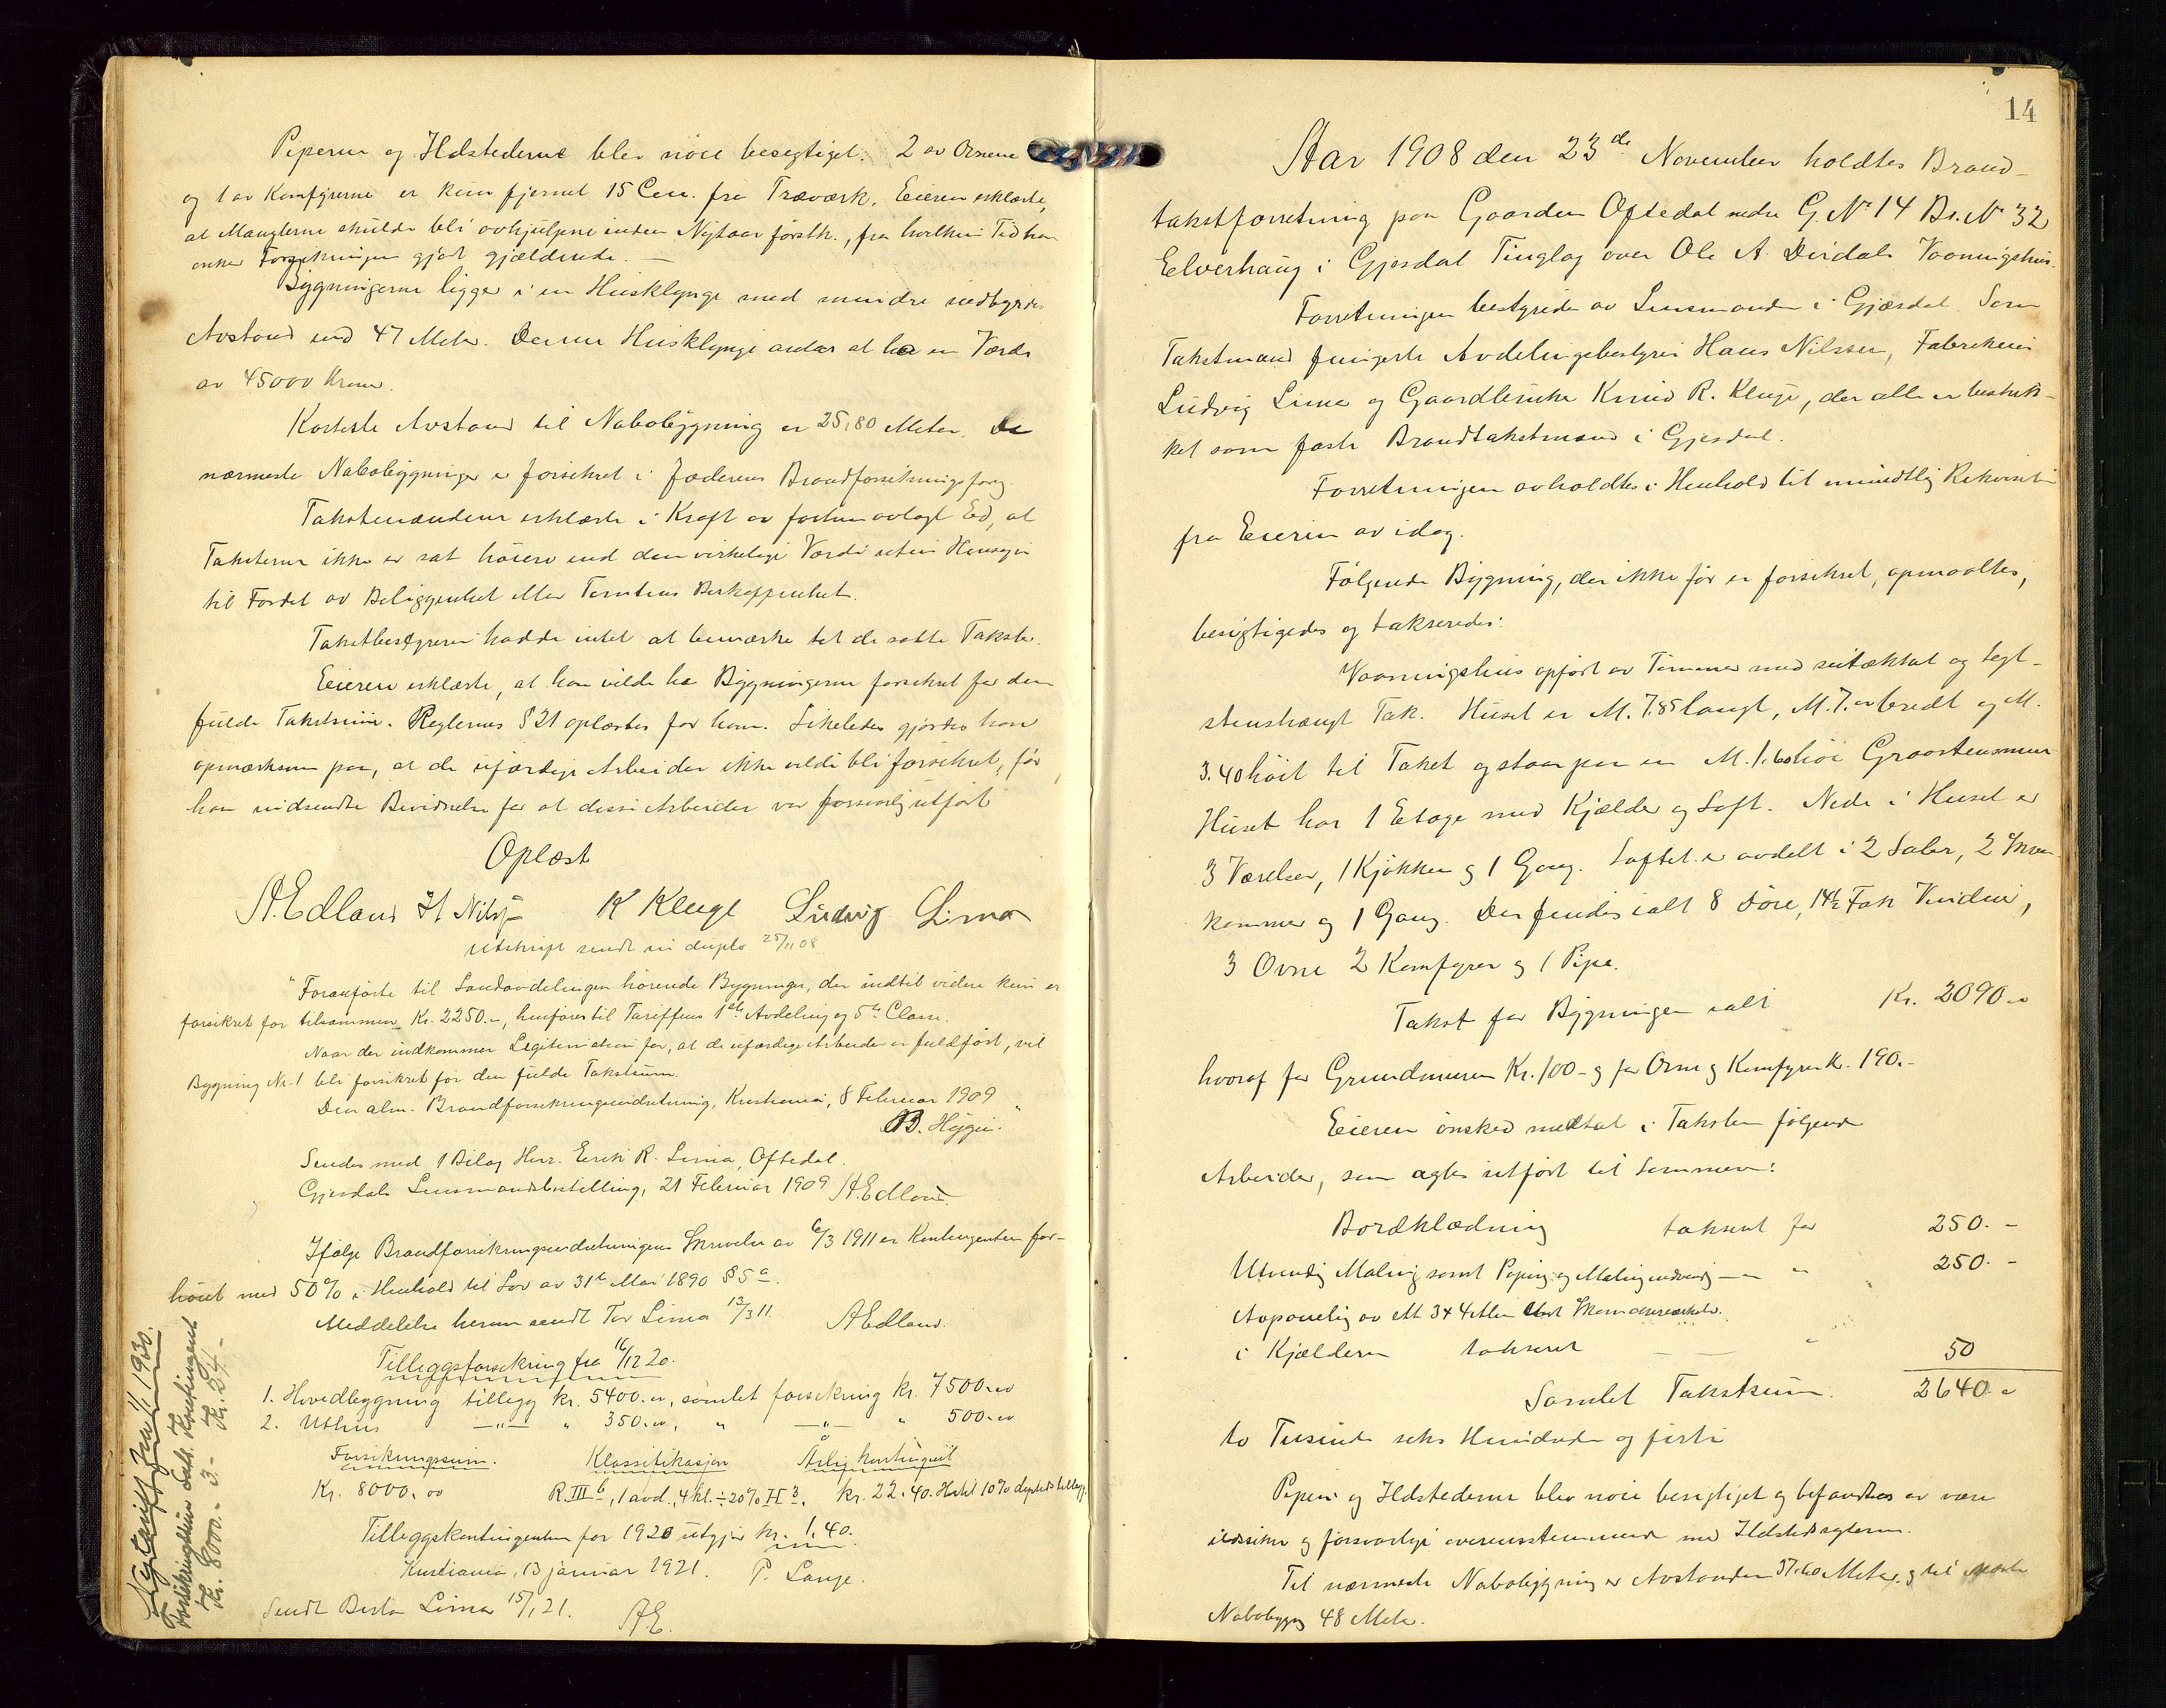 Piperne og Ildstederne blev nöie besigtiget. 2 av Ovnene
og 1 av Komfyrerne er kun fjernet 15 Cm. fra Træværk. Eieren erklærte,
at Manglerne skulde bli avhjulpne inden Nytaar förstk., fra hvilken Tid han
önsker Forsikringen gjort gjældende. —
Bygningerne ligger i en Husklynge med mindre indbyrdes
Avstand end 47 Meter. Denne Husklynge antas at ha en Værdi
av 45000 Kroner.
Korteste Avstand til Nabobygning er 25,80 Meter. De
nærmeste Nabobygninger er forsikret i Jæderens Brandforsikringsforg.
Takstmændene erklærte i Kraft av forhen avlagt Ed, at
Taksterne ikke er sat höiere end den virkelige Værdi uten Hensyn
til Fordel av Beliggenhet eller Tomtens Beskaffenhet.
Takstbestyreren hadde intet at bemærke til de satte Takster.
Eieren erklærte, at han vilde ha Bygningerne forsikret for den
fulde Takstsum. Reglernes § 21 oplæstes for ham. Likeledes gjordes han
opmærksom paa, at de ufærdige Arbeider ikke vilde bli forsikret, för
han indsendte Bevidnelse for at disse Arbeider var forsvarlig utfört
Oplæst
A. Edland H Nilssen K Kluge Ludvig Lima
Utskrift sendt in duplo 25/11 08
"Foranförte til Landavdelingen hörende Bygninger, der indtil videre kun er
forsikret for tilsammen Kr. 2250.-, henföres til Tariffens 1ste Avdeling og 5te Classe.
Naar der indkommer Legitimation for, at de ufærdige Arbeider er fuldfört, vil
Bygning Nr. 1 bli forsikret for den fulde Takstsum.
Den alm. Brandforsikringsindretning, Kristiania, 8 Februar 1909
B. Hygen."
Sendes med 1 Bilag Herr. Eerik R. Lima, Oftedal.
Gjesdals Lensmandsbestilling, 21 Februar 1909 A. Edland.
Ifölge Brandforsikringsindretningens Skrivelse av 6/3 1911 er Kontingenten for-
höiet med 50% i Henhold til Lov av 31te Mai 1890 § 5 a.
Meddelelse herom sendt Tor Lima 13/3 11. AEdland.
Tilleggsforsikring fra 16/12 20.
1. Hovedbygning tillegg kr. 5400.00, samlet forsikring kr. 7500.00
2. Uthus —"— " 350.00, " —"— " 500.00
Forsikringssum. Klassifikasjon Årlig kontingent
Kr. 8000.00 R. III b, 1 avd., 4 kl. ÷ 20% H 3. Kr. 22.40. Hertil 10% dyrtidstillegg.
Tilleggskontingenten for 1920 utgjör kr. 1.40.
Kristiania, 13 januar 1921. P. Lange.
Sendt Berta Lima 15/1 21. AE.
Nytarift fra 1/1 1930.
Forsikringssum Aarl. Kontingent
Kr. 8000.- 3.- Kr. 24.-
14
Aar 1908 den 23de November holdtes Brand-
takstforretning paa Gaarden Oftedal nedre G. No 14 Br. No 32
Eelverhaug i Gjesdal Tinglag over Ole A. Dirdals Vaaningshus.
Forretningen bestyredes av Lensmanden i Gjæsdal. Som
Takstmænd fungerte Avdelingsbestyrer Hans Nilssen, Fabrikeier
Ludvig Lima og Gaardbruker Knud R. Kluge, der alle er beskik-
ket som faste Brandtakstmænd i Gjesdal.
Forretningen avholdtes i Henhold til mundtlig Rekvisition
fra Eieren av idag.
Fölgende Bygning, der ikke för er forsikret, opmaaltes,
besigtigedes og takseredes:
Vaaningshus opfört av Tömmer med sutæktat og tegl-
stenshængt Tak. Huset er M. 7.85 langt, M. 7.00 bredt og M.
3.40 höit til Taket og staar paa en M. 1.60 höi Graastensmur
Huset har 1 Etage med Kjælder og Loft. Nede i Huset er
3 Værelser, 1 Kjökken og 1 Gang. Loftet er avdelt i 2 Saler, 2 Smaa-
kammer og 1 Gang. Der findes ialt 8 Döre, 14½ Fak Vinduer,
3 Ovne 2 Komfyrer og 1 Pipe.
Takst for Bygningen ialt Kr. 2090.00
hvoraf for Grundmuren Kr. 100- og for Ovne og Komfyrer Kr. 190.-
Eieren önsked medtat i Taksten fölgende
Arbeider, som agtes utfört til Sommeren:
Bordklædning taksert for 250.-
Utvendig Maling samt Paping og Maling indvendig —"— " 250.-
Avpaneling av et 3 x 4 Alen stort
i Kjælderen takseret — — " 50
Samlet Takstsum. 2640.00
to Tusinde seks Hundrede og firti
Pipen og Ildstederne blev nöie besigtiget og befandtes at være
ildssikre og forsvarlige overensstemmende med Ildstedsreglerne.
Til nærmeste Nabobygning er Avstanden 37.60 Meter og til næste
Nabobygg 48 Meter.